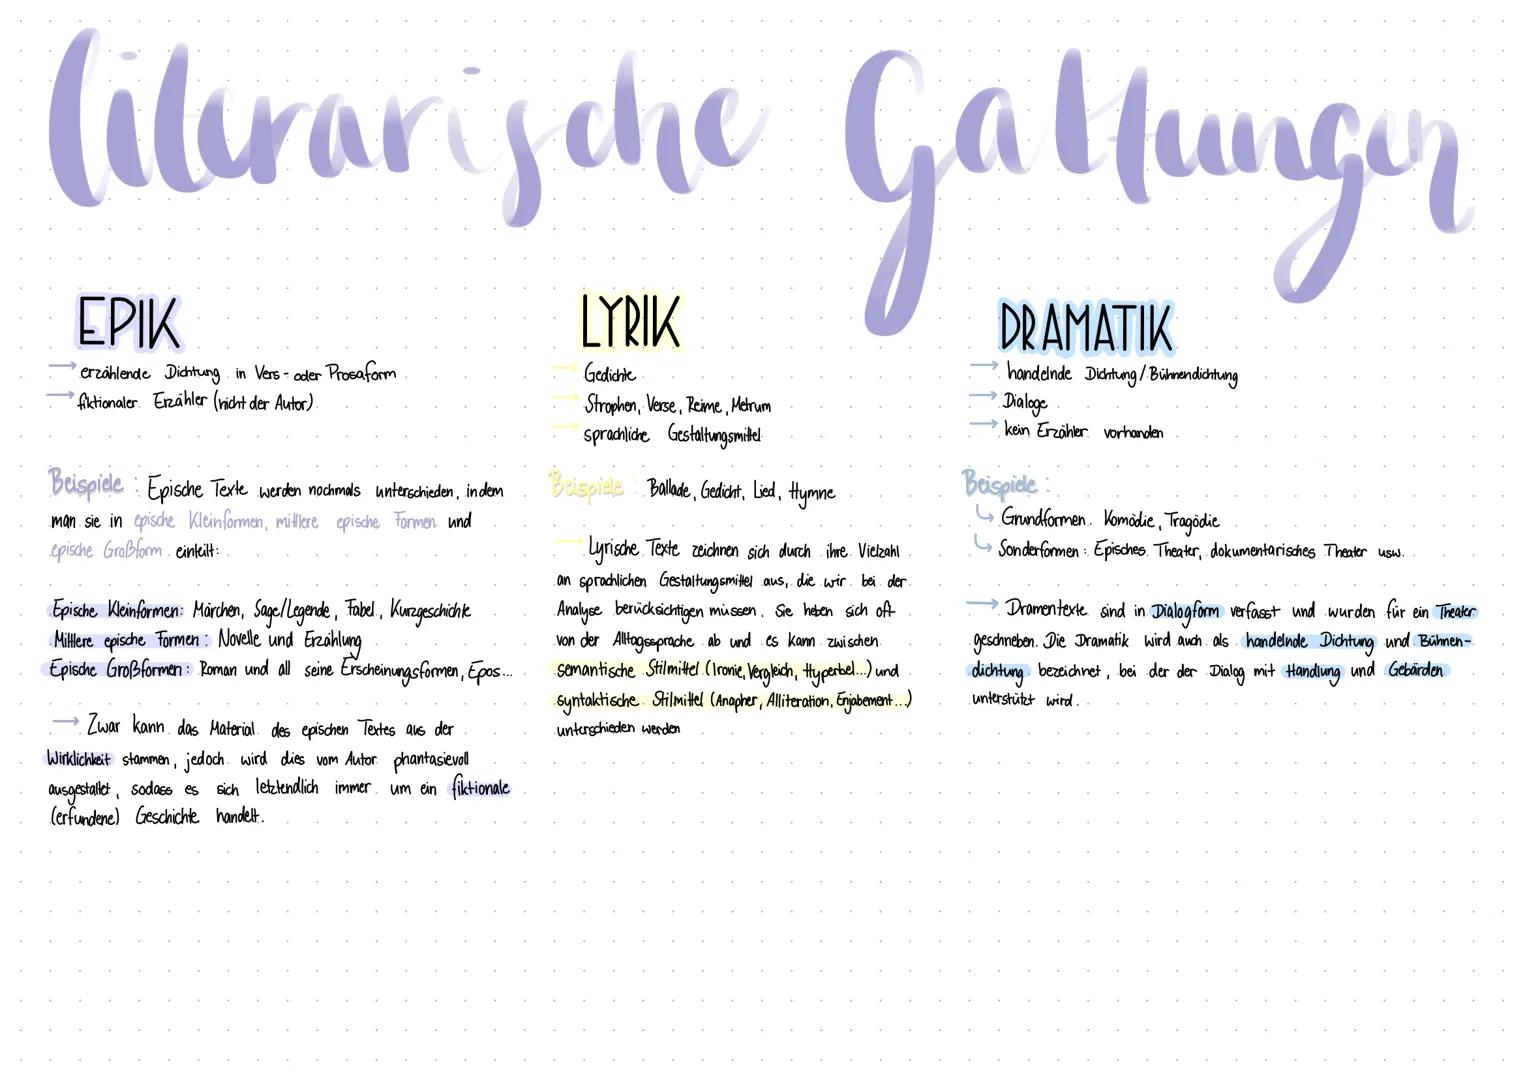 literarische Gattungen
EPIK
→ erzählende Dichtung in Vers- oder Prosaform
→ fiktionaler Erzähler (nicht der Autor)
Beispiele: Epische Texte werden nochmals unterschieden, indem
man sie in epische Kleinformen, mittlere epische Formen und
epische Großform einteilt:
Epische Kleinformen: Märchen, Sage/Legende, Fabel, Kurzgeschichte
Mittlere epische Formen: Novelle und Erzählung
Epische Großformen: Roman und all seine Erscheinungsformen, Epos...
→ Zwar kann das Material des epischen Textes aus der
Wirklichkeit stammen, jedoch wird dies vom Autor phantasievoll
ausgestaltet, sodass es sich letztendlich immer um ein fiktionale
(erfundene) Geschichte handelt.
LYRIK
→ Gedichte
→ Strophen, Verse, Reime, Metrum
→ sprachliche Gestaltungsmittel
Beispiele: Ballade, Gedicht, Lied, Hymne
→ Lyrische Texte zeichnen sich durch ihre Vielzahl
an sprachlichen Gestaltungsmittel aus, die wir bei der
Analyse berücksichtigen müssen. Sie heben sich oft
von der Alltagssprache ab und es kann zwischen
semantische Stilmittel (Ironie, Vergleich, Hyperbel...) und
syntaktische Stilmittel (Anapher, Alliteration, Enjabement...)
unterschieden werden
DRAMATIK
→ handelnde Dichtung/Bühnendichtung
→ Dialoge
→ kein Erzähler vorhanden
Beispiele:
↳ Grundformen: Komödie, Tragödie
↳ Sonderformen: Episches Theater, dokumentarisches Theater usw.
→ Dramentexte sind in Dialogform verfasst und wurden für ein Theater
geschrieben. Die Dramatik wird auch als handelnde Dichtung und Bühnen-
dichtung bezeichnet, bei der der Dialog mit Handlung und Gebärden
unterstützt wird.